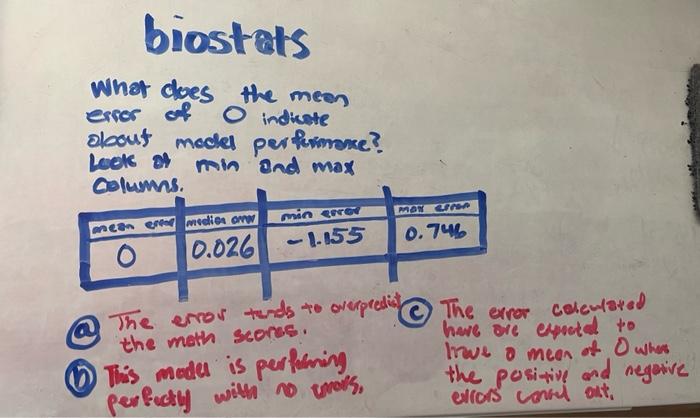 biostats
What does the mean
error of 0 indicate
about model performance?
Look at min and max
columns.
mean error median error min error max error
0 0.026 -1.155 0.746
a The error tends to overpredict
the math scores.
b This model is performing
perfectly with no errors.
c The error calculated
here are expected to
have a mean of 0 when
the positive and negative
errors cancel out.